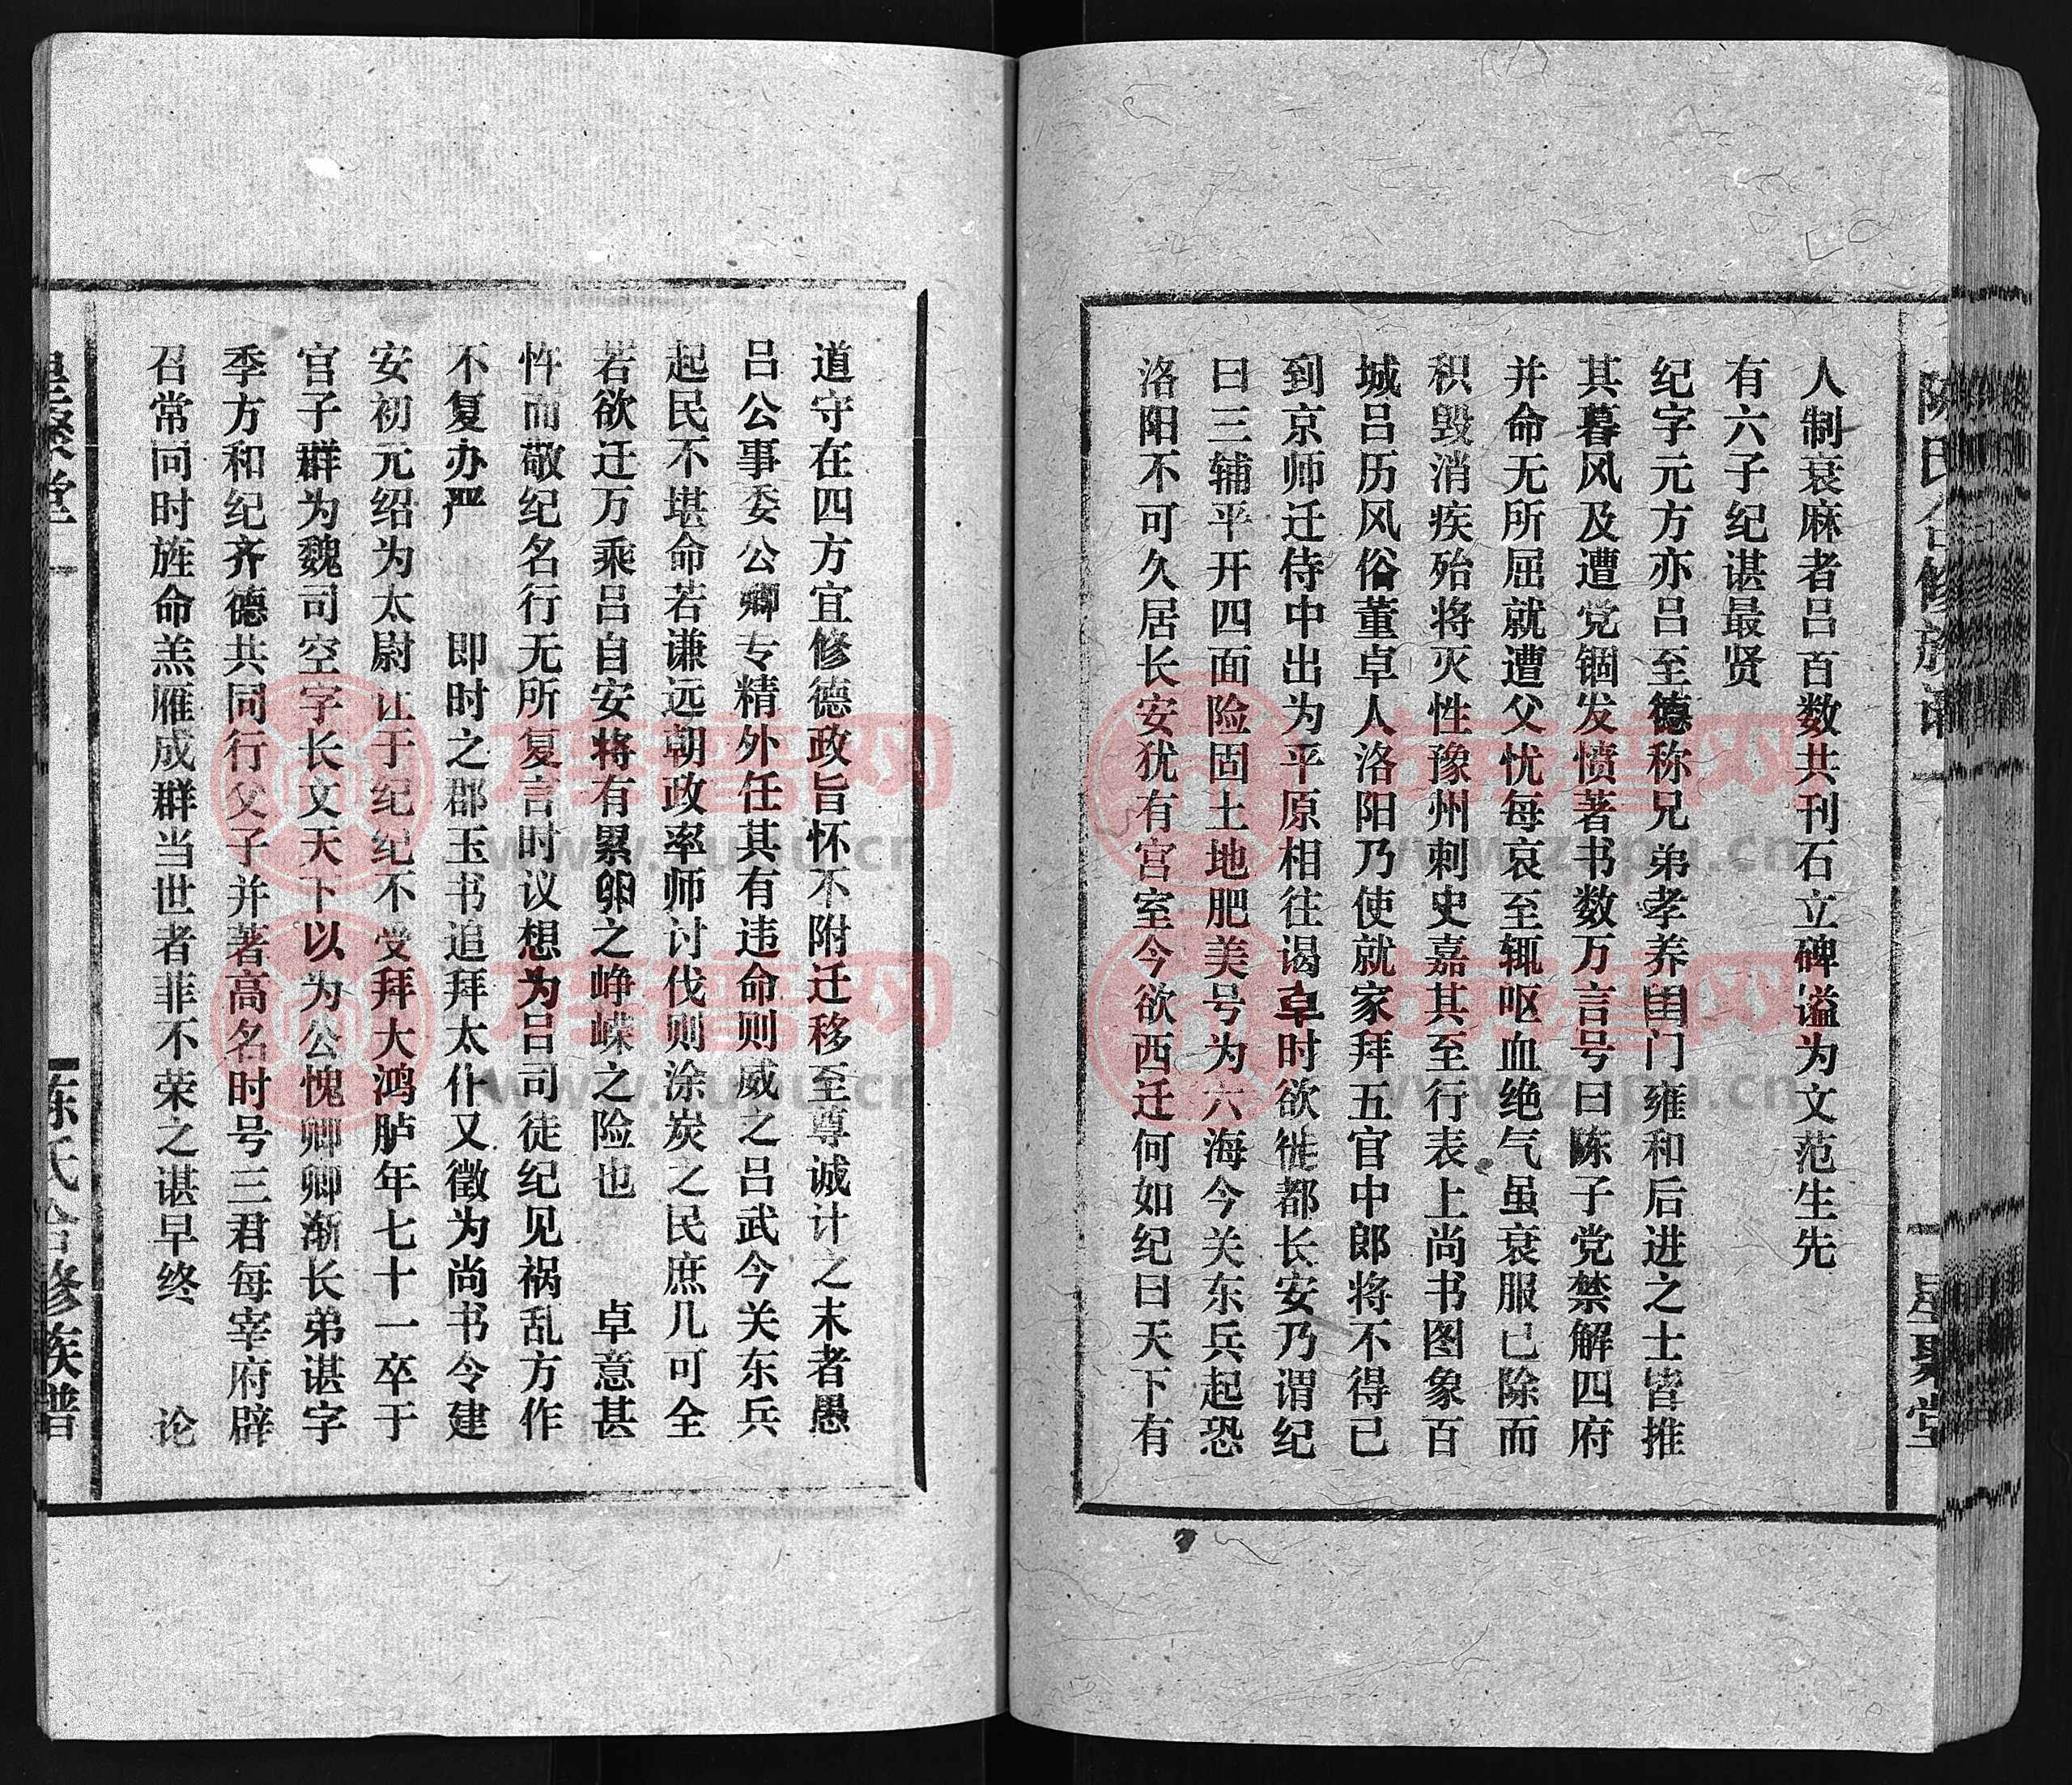 陈氏合修族谱
一星聚堂
人制衰麻者吕百数共刊石立碑谥为文范生先
有六子纪谌最贤
纪字元方亦吕至德称兄弟孝养闺门雍和后进之士皆推
其暮风及遭党锢发愤著书数万言号曰陈子党禁解四府
并命无所屈就遭父忧每哀至辄呕血绝气虽衰服已除而
积毁消疾殆将灭性豫州刺史嘉其至行表上尚书图象百
城吕历风俗董卓人洛阳乃使就家拜五官中郎将不得已
到京师迁侍中出为平原相往谒卓时欲徙都长安乃谓纪
曰三辅平开四面险固土地肥美号为六海今关东兵起恐
洛阳不可久居长安犹有宫室今欲西迁何如纪曰天下有
道守在四方宜修德政旨怀不附迁移至尊诚计之末者愚
吕公事委公卿专精外任其有违命则威之吕武今关东兵
起民不堪命若谦远朝政率师讨伐则涂炭之民庶几可全
若欲迁万乘吕自安将有累卵之峥嵘之险也 卓意甚
忤而敬纪名行无所复言时议想为吕司徒纪见祸乱方作
不复办严 即时之郡玉书追拜太仆又徵为尚书令建
安初元绍为太尉让于纪纪不受拜大鸿胪年七十一卒于
官子群为魏司空字长文天下以为公愧卿卿渐长弟谌字
季方和纪齐德共同行父子并著高名时号三君每宰府辟
召常同时旌命羔雁成群当世者菲不荣之谌早终 论
陈氏合修族谱
www.zupu.cn
族谱网
www.zupu.cn
族谱网
www.zupu.cn
族谱网
www.zupu.cn
族谱网